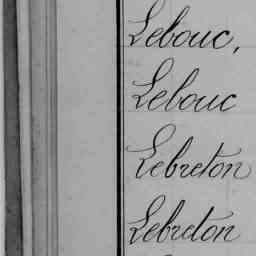 Lebouc,
Lebouc
Lebreton
Lebreton